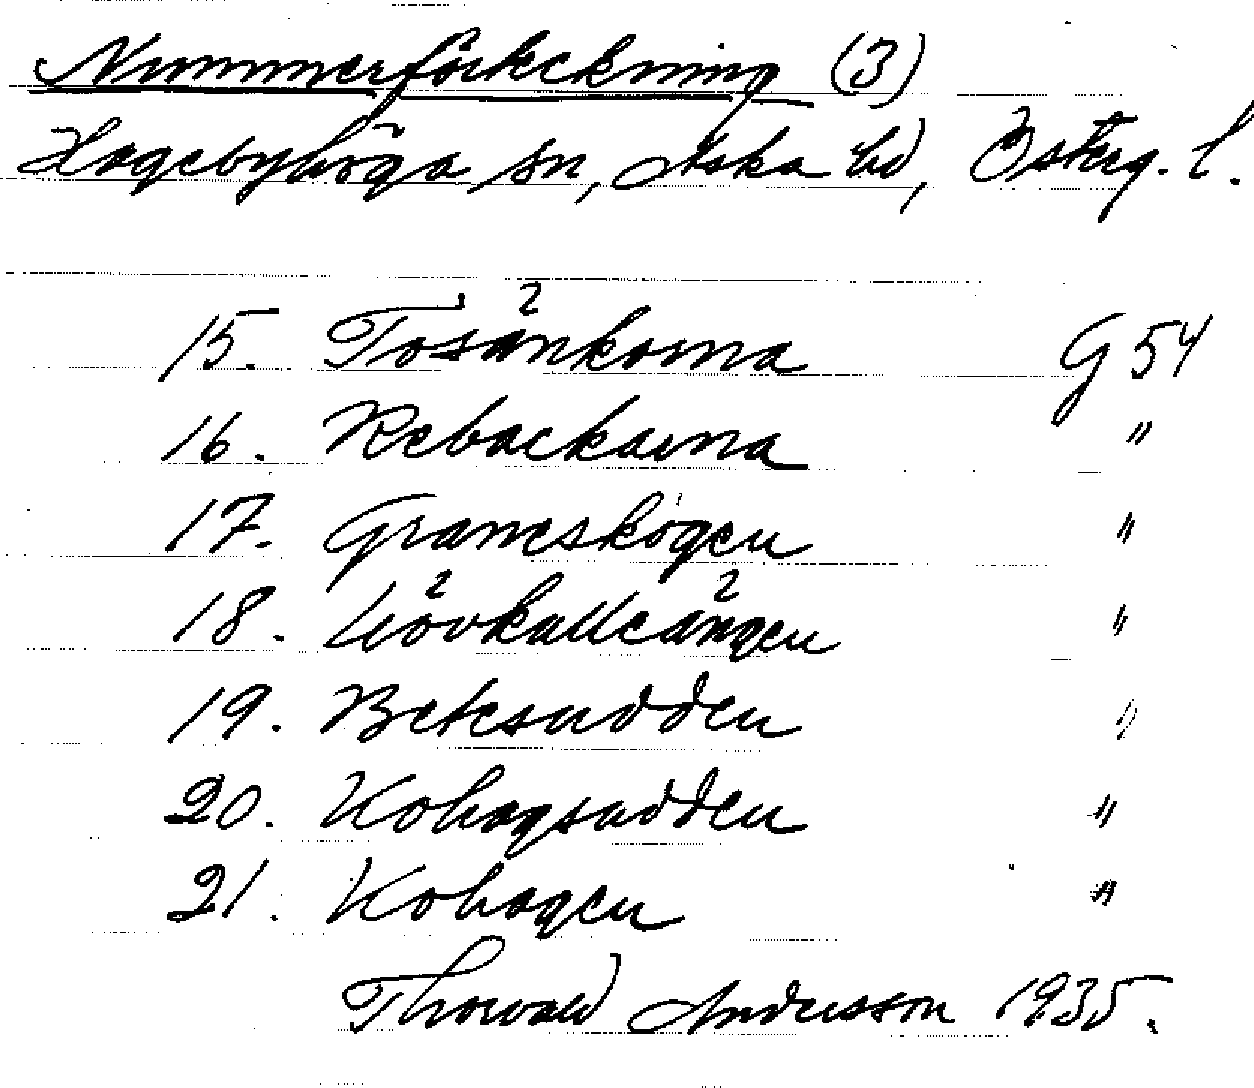 Nummerförteckning (3)
Hagebyhöga sn, Aska hd, Österg. l.
15. Tosänkorna G 54
16. Rebackarna "
17. Graneskogen "
18. Lövkalleängen "
19. Betesudden "
20. Kohagsudden "
21. Kohagen "
Thorvald Andersson 1935.